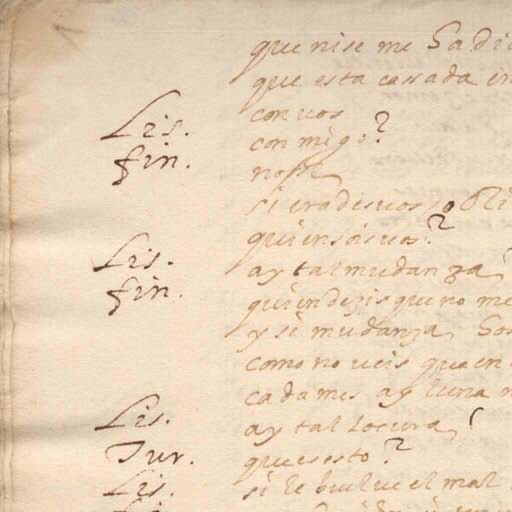 que nise me ha di
que esta cassada en
con uos
Lis. con migo?
fin. no se
si erades uos o
quien sois uos?
Lis. ay tal mudanza
fin. quien dezis que no me
y si mudanza
como no ueis que en
cada mes ay luna n
Lis. ay tal locura!
Tur. que es esto?
Lis. si le buelue el mal